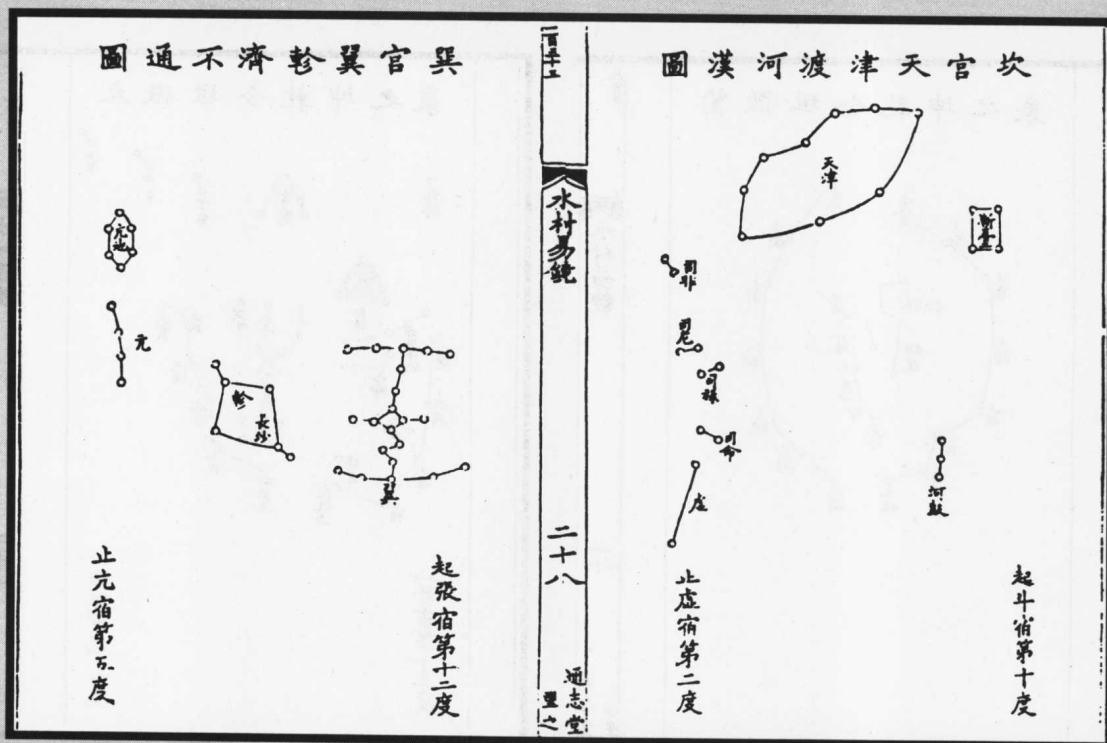 坎宮天津渡河漢圖
天津
漸臺
司非
司危
司祿
司命
虛
河鼓
起斗宿第十度
止虛宿第二度
水村易鏡
二十八
通志堂
巽宮翼軫濟不通圖
亢池
亢
軫
長沙
翼
起張宿第十二度
止亢宿第五度